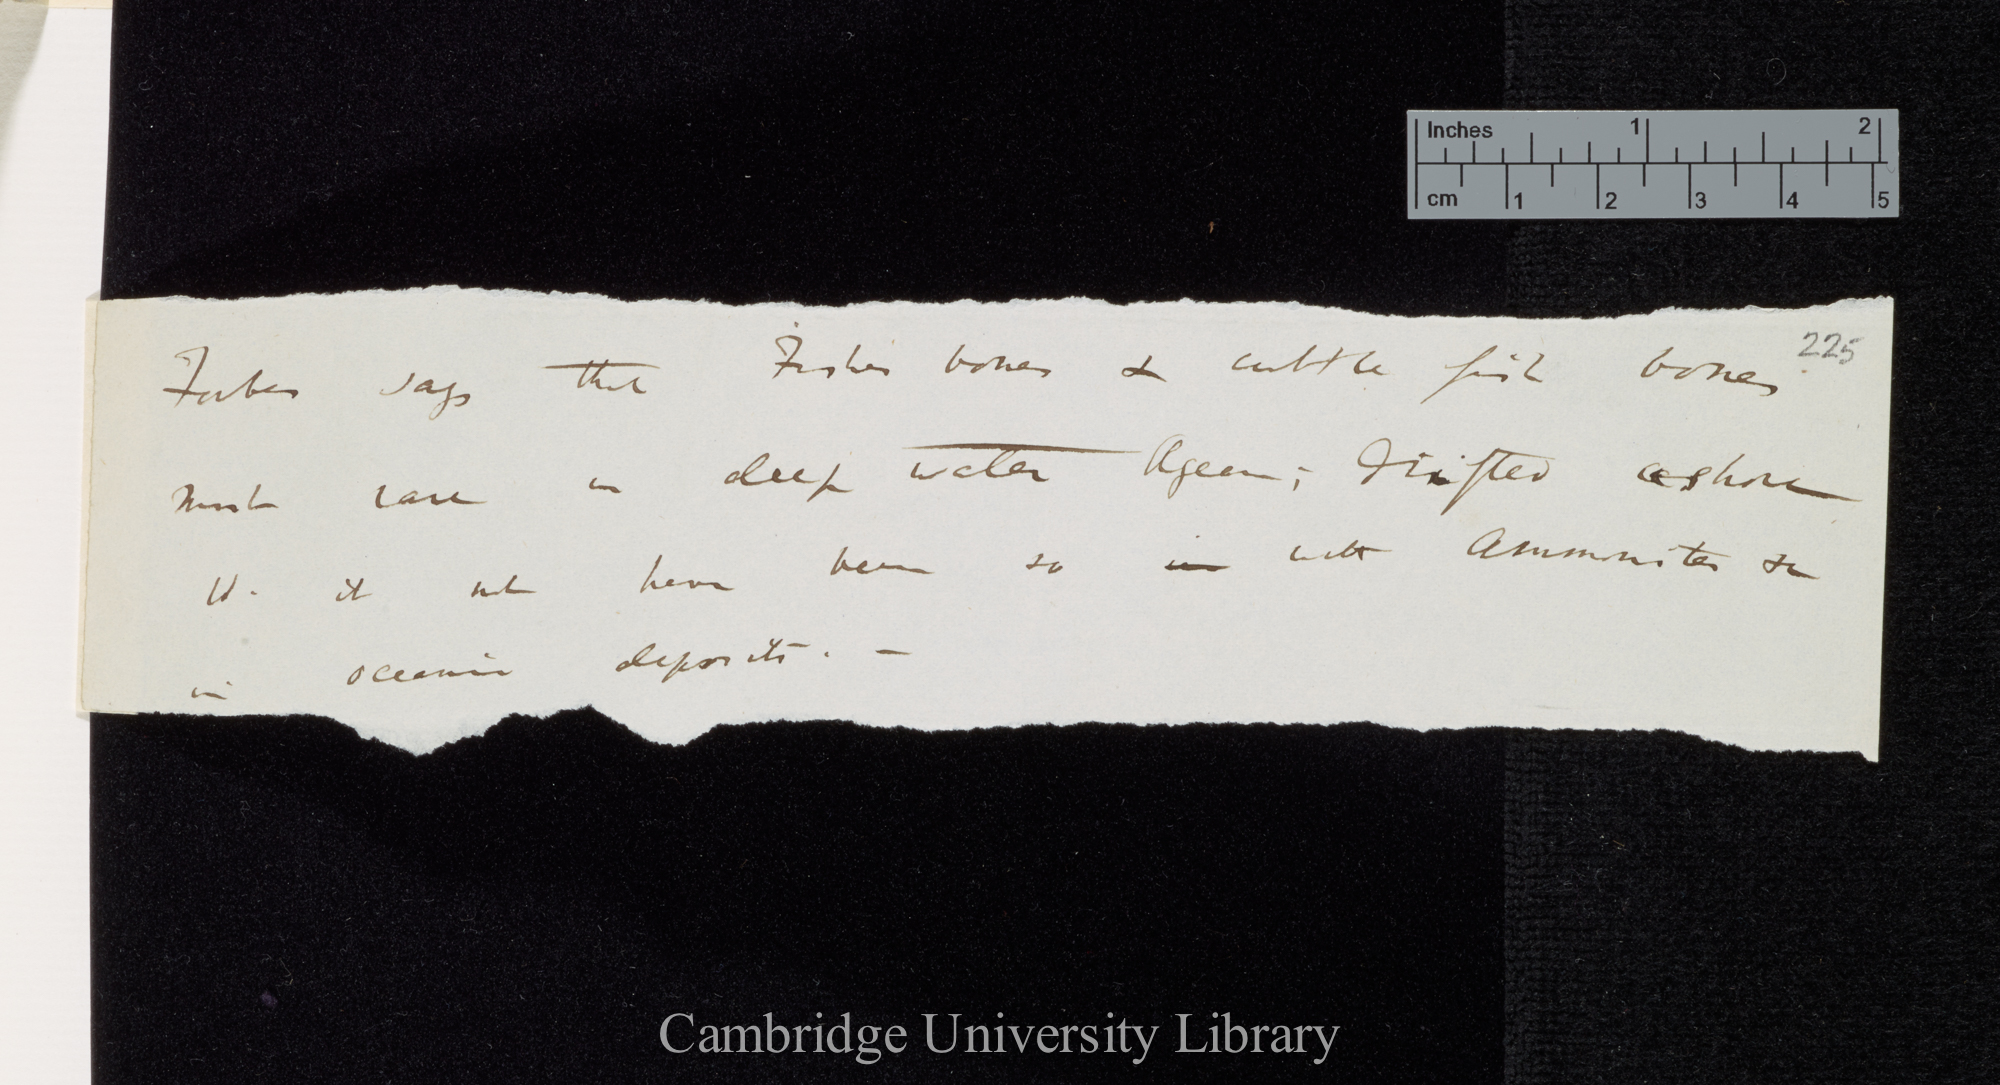 Inches 1 2
cm 1 2 3 4 5
225
Forbes says that Fishes bones & cuttle fish bones
most rare in deep water Ægean; Drifted ashore
it not have been so in with Ammonites &c
in oceanic deposits. —
Cambridge University Library